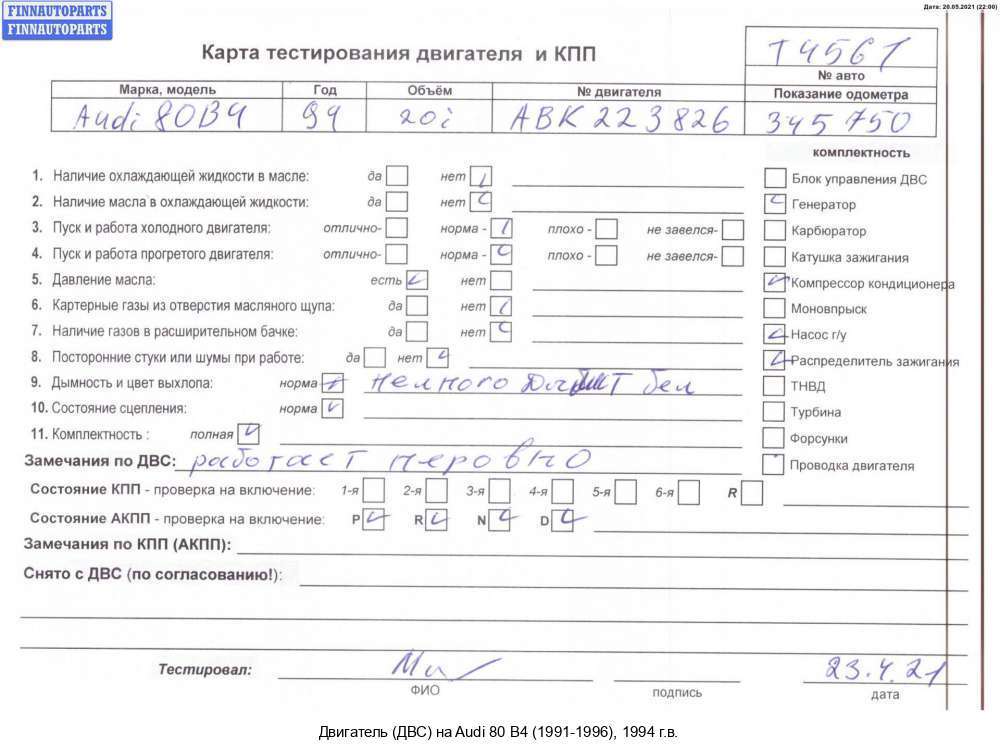 Дата: 20.05.2021 (22:00)
FINNAUTOPARTS
FINNAUTOPARTS
Карта тестирования двигателя и КПП
T4561
№ авто
Марка, модель Год Объём № двигателя Показание одометра
Audi 80B4 94 20i ABK 223826 345 750
комплектность
1. Наличие охлаждающей жидкости в масле: да нет
Блок управления ДВС
2. Наличие масла в охлаждающей жидкости: да нет
Генератор
3. Пуск и работа холодного двигателя: отлично- норма - плохо - не завелся-
Карбюратор
4. Пуск и работа прогретого двигателя: отлично- норма - плохо - не завелся-
Катушка зажигания
5. Давление масла: есть нет
Компрессор кондиционера
6. Картерные газы из отверстия масляного щупа: да нет
Моновпрыск
7. Наличие газов в расширительном бачке: да нет
Насос г/у
8. Посторонние стуки или шумы при работе: да нет
Распределитель зажигания
9. Дымность и цвет выхлопа: норма немного дымит бел
ТНВД
10. Состояние сцепления: норма
Турбина
11. Комплектность : полная
Форсунки
Замечания по ДВС: работает неровно
Проводка двигателя
Состояние КПП - проверка на включение: 1-я 2-я 3-я 4-я 5-я 6-я R
Состояние АКПП - проверка на включение: P R N D
Замечания по КПП (АКПП):
Снято с ДВС (по согласованию!):
Тестировал: 23.4.21
ФИО подпись дата
Двигатель (ДВС) на Audi 80 B4 (1991-1996), 1994 г.в.